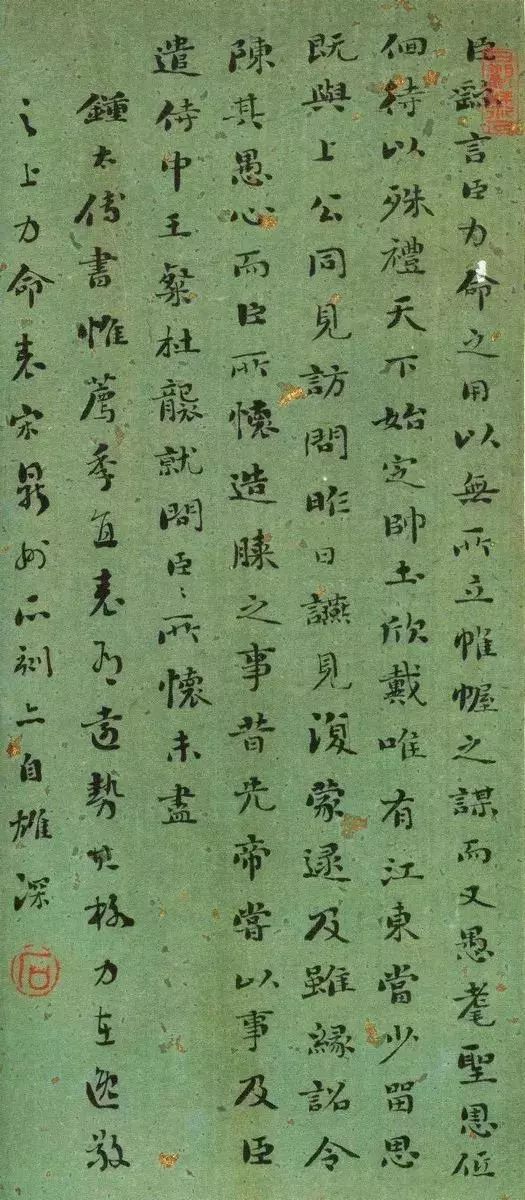 臣繇言臣力命之用以無所立帷幄之謀而又愚耄聖恩低
佪待以殊禮天下始定帥土欣戴唯有江東當少留思
既與上公同見訪問昨日讌見復蒙逮及雖緣詔令
陳其愚心而臣所懷造膝之事昔先帝嘗以事及臣
遣侍中王粲杜襲就問臣〻所懷未盡
鍾太傅書惟薦季直表有遠勢其格力在逸敬
之上力命表宋泉州所刻亦自雄深